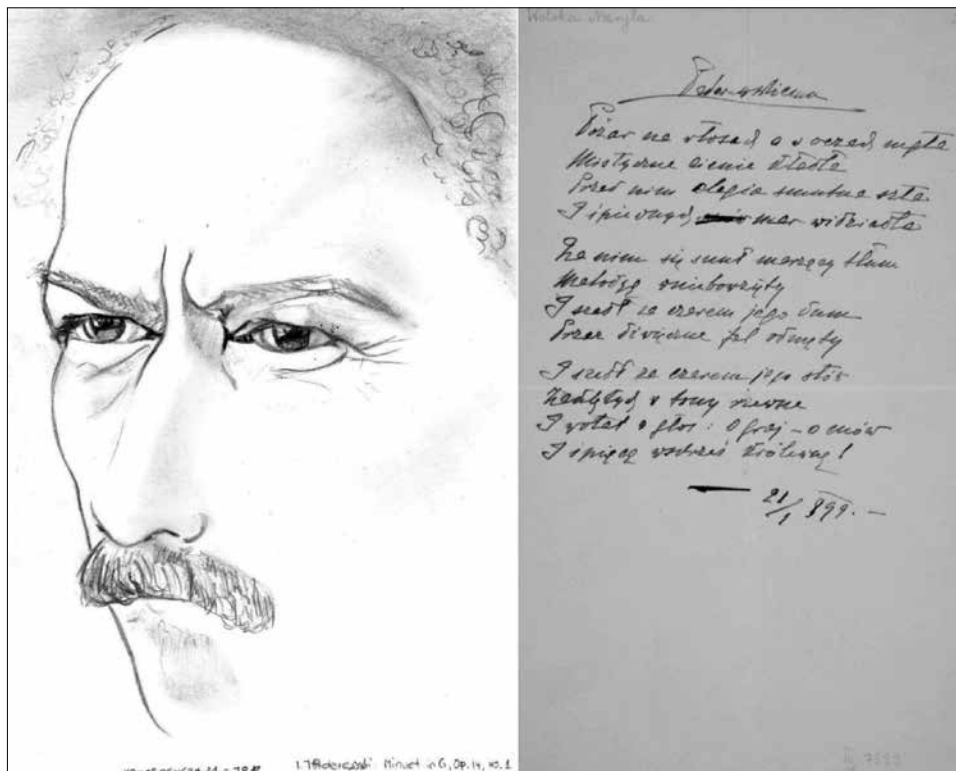 Wolska Maryla
Paderewskiemu
Pożar na włosach a w oczach mgła
Mistyczne cienie kładła
Przed nim elegia smutna szła
I śpiewnych mar widziadła
Za nim się snuł marzący tłum
Melodyą wniebowzięty
I szedł za czarem jego dum
Przez dźwięczne fal odmęty
I szedł za czarem jego słów
Zaklętych w tony rzewne
I wołał w głos: O graj – o mów
I śpiącą wskrześ królewnę!
21/1 899. –
I. J. Paderewski Minuet in G, Op. 14, no. 1